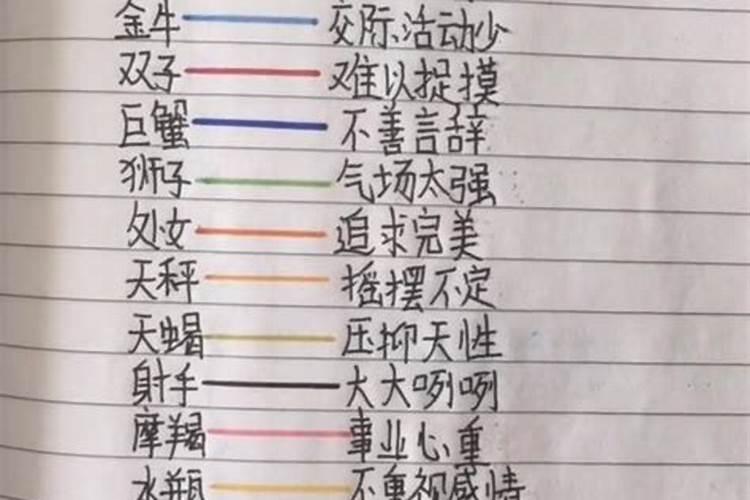 金牛 交际活动少
双子 难以捉摸
巨蟹 不善言辞
狮子 气场太强
处女 追求完美
天秤 摇摆不定
天蝎 压抑天性
射手 大大咧咧
摩羯 事业心重
水瓶 不重视感情